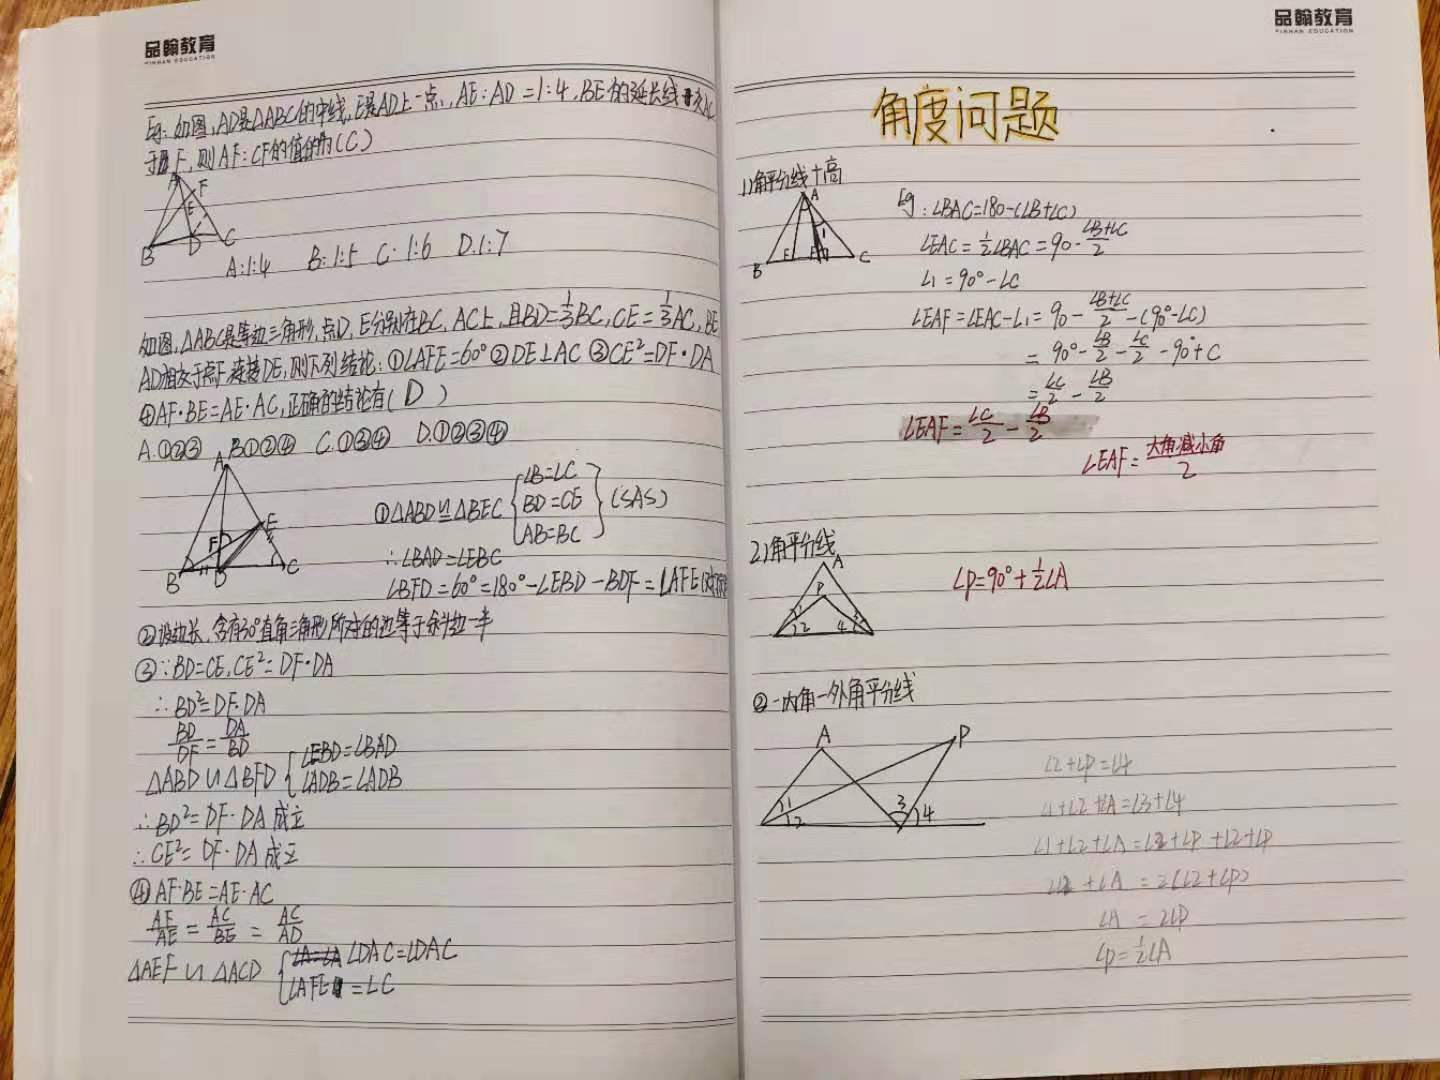 品翰教育
PINHAN EDUCATION
Eg: 如图,AD是△ABC的中线,E是AD上一点,AE:AD=1:4,BE的延长线交AC
于F,则AF:CF的值为(C)
A F E B D C
A:1:4 B:1:5 C:1:6 D.1:7
如图,△ABC是等边三角形,点D,E分别在BC,AC上,且BD=1/3BC,CE=1/3AC,BE
AD相交于点F,连接DE,则下列结论:①∠AFE=60°②DE⊥AC③CE²=DF·DA
④AF·BE=AE·AC,正确的结论有(D)
A.①②③ B.①②④ C.①③④ D.①②③④
A E F B D C
①△ABD≌△BEC {∠B=∠C BD=CE AB=BC} (SAS)
∴∠BAD=∠EBC
∠BFD=60°=180°-∠EBD-BDF=∠AFE
②设边长,含有30°直角三角形所对的边等于斜边一半
③∵BD=CE,CE²=DF·DA
∴BD²=DF·DA
BD/DF=DA/BD
△ABD∽△BFD {∠EBD=∠BAD ∠ADB=∠ADB
∴BD²=DF·DA成立
∴CE²=DF·DA成立
④AF·BE=AE·AC
AF/AE=AC/BE=AC/AD
△AEF∽△ACD {∠DAC=∠DAC ∠AFE=∠C
品翰教育
PINHAN EDUCATION
角度问题
1)角平分线+高
A 1 B E F D C
Eg:∠BAC=180-(∠B+∠C)
∠EAC=1/2∠BAC=90-(∠B+∠C)/2
∠1=90°-∠C
∠EAF=∠EAC-∠1=90-(∠B+∠C)/2-(90°-∠C)
=90°-∠B/2-∠C/2-90°+C
=∠C/2-∠B/2
∠EAF=∠C/2-∠B/2
∠EAF=大角减小角/2
2)角平分线
A P 1 2 4 3
∠P=90°+1/2∠A
②一内角一外角平分线
A P 1 2 3 4
∠2+∠P=∠4
∠1+∠2+∠A=∠3+∠4
∠1+∠2+∠A=∠2+∠P+∠2+∠P
2∠2+∠A=2(∠2+∠P)
∠A=2∠P
∠P=1/2∠A